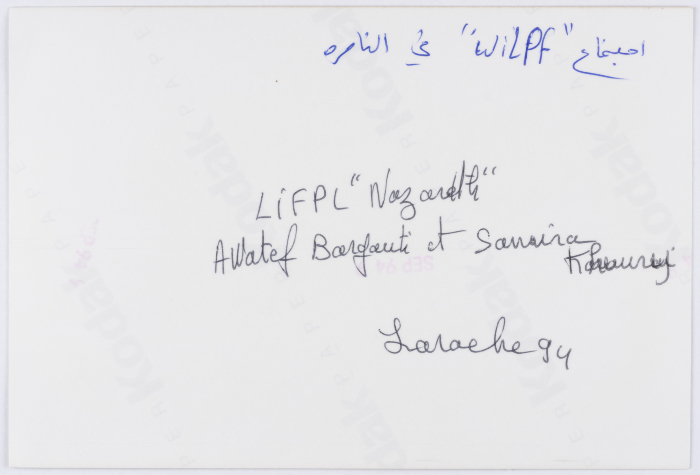 اجتماع "WiLPF" في الناصره
LiFPL "Nazareth"
AWatef Bargouti et Samira
Khoury
Larache 94
SEP 94
Kodak PAPER